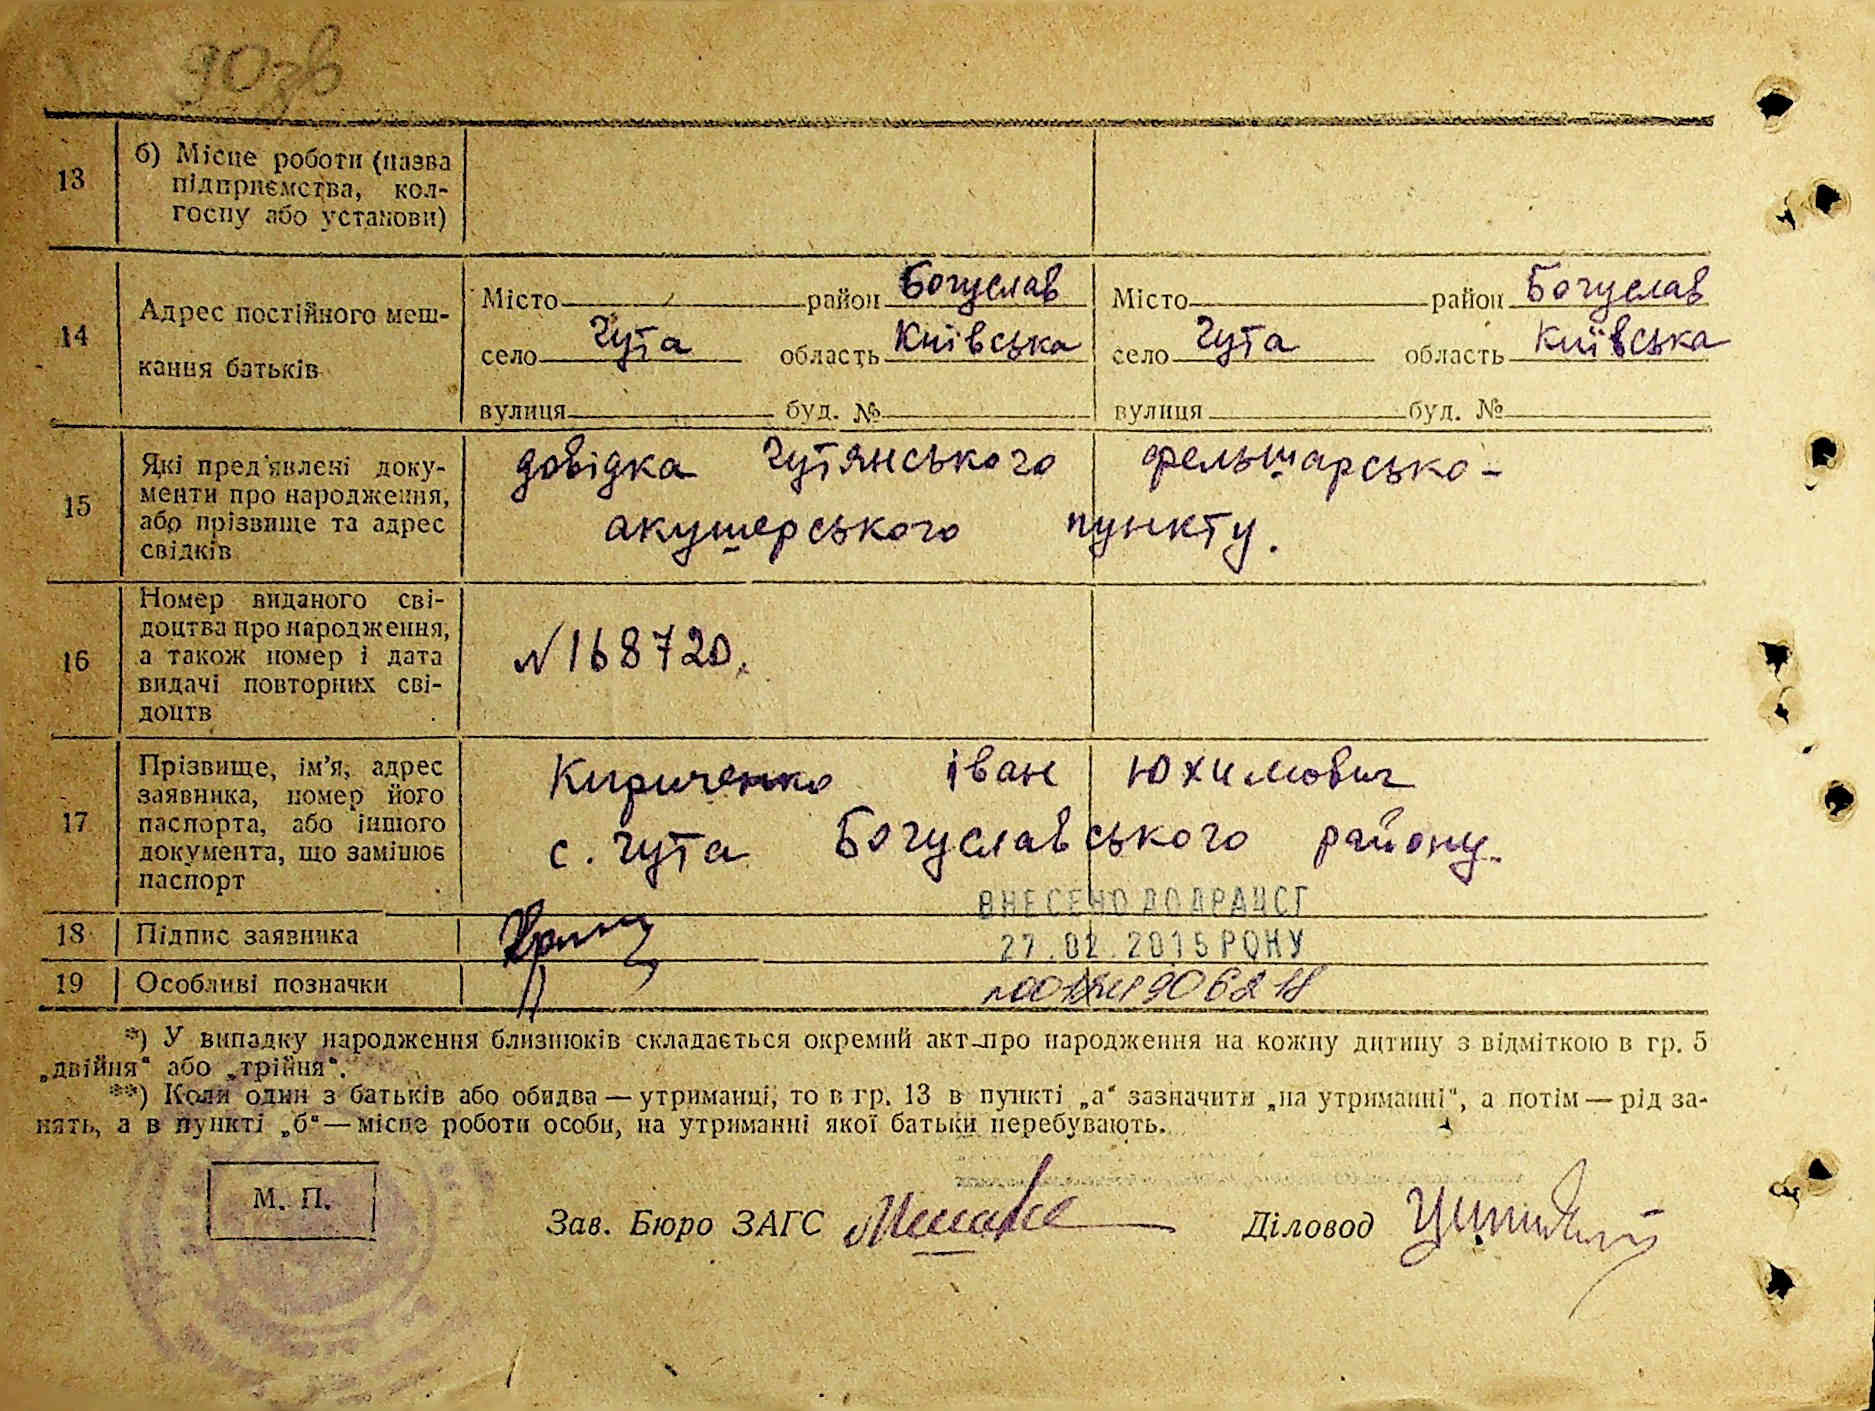 90зв
13 б) Місце роботи (назва
підприємства, кол-
госпу або установи)
14 Адрес постійного меш-
кання батьків
Місто район Богуслав
село Чута область Київська
вулиця буд. №
Місто район Богуслав
село Чута область Київська
вулиця буд. №
15 Які пред'явлені доку-
менти про народження,
або прізвище та адрес
свідків
довідка Чутянського фельшарсько-
акушерського пункту.
16 Номер виданого сві-
доцтва про народження,
а також номер і дата
видачі повторних сві-
доцтв
N 168720.
17 Прізвище, ім'я, адрес
заявника, номер його
паспорта, або іншого
документа, що замінює
паспорт
Кириченко Іван Юхимович
с. Чута Богуславського району.
ВНЕСЕНО ДО ДРАЦСГ
18 Підпис заявника
27.02.2015 РОКУ
19 Особливі позначки
*) У випадку народження близнюків складається окремий акт про народження на кожну дитину з відміткою в гр. 5
„двійня“ або „трійня“.
**) Коли один з батьків або обидва — утриманці, то в гр. 13 в пункті „а“ зазначити „на утриманні“, а потім — рід за-
нять, а в пункті „б“ — місце роботи особи, на утриманні якої батьки перебувають.
М. П.
Зав. Бюро ЗАГС
Діловод